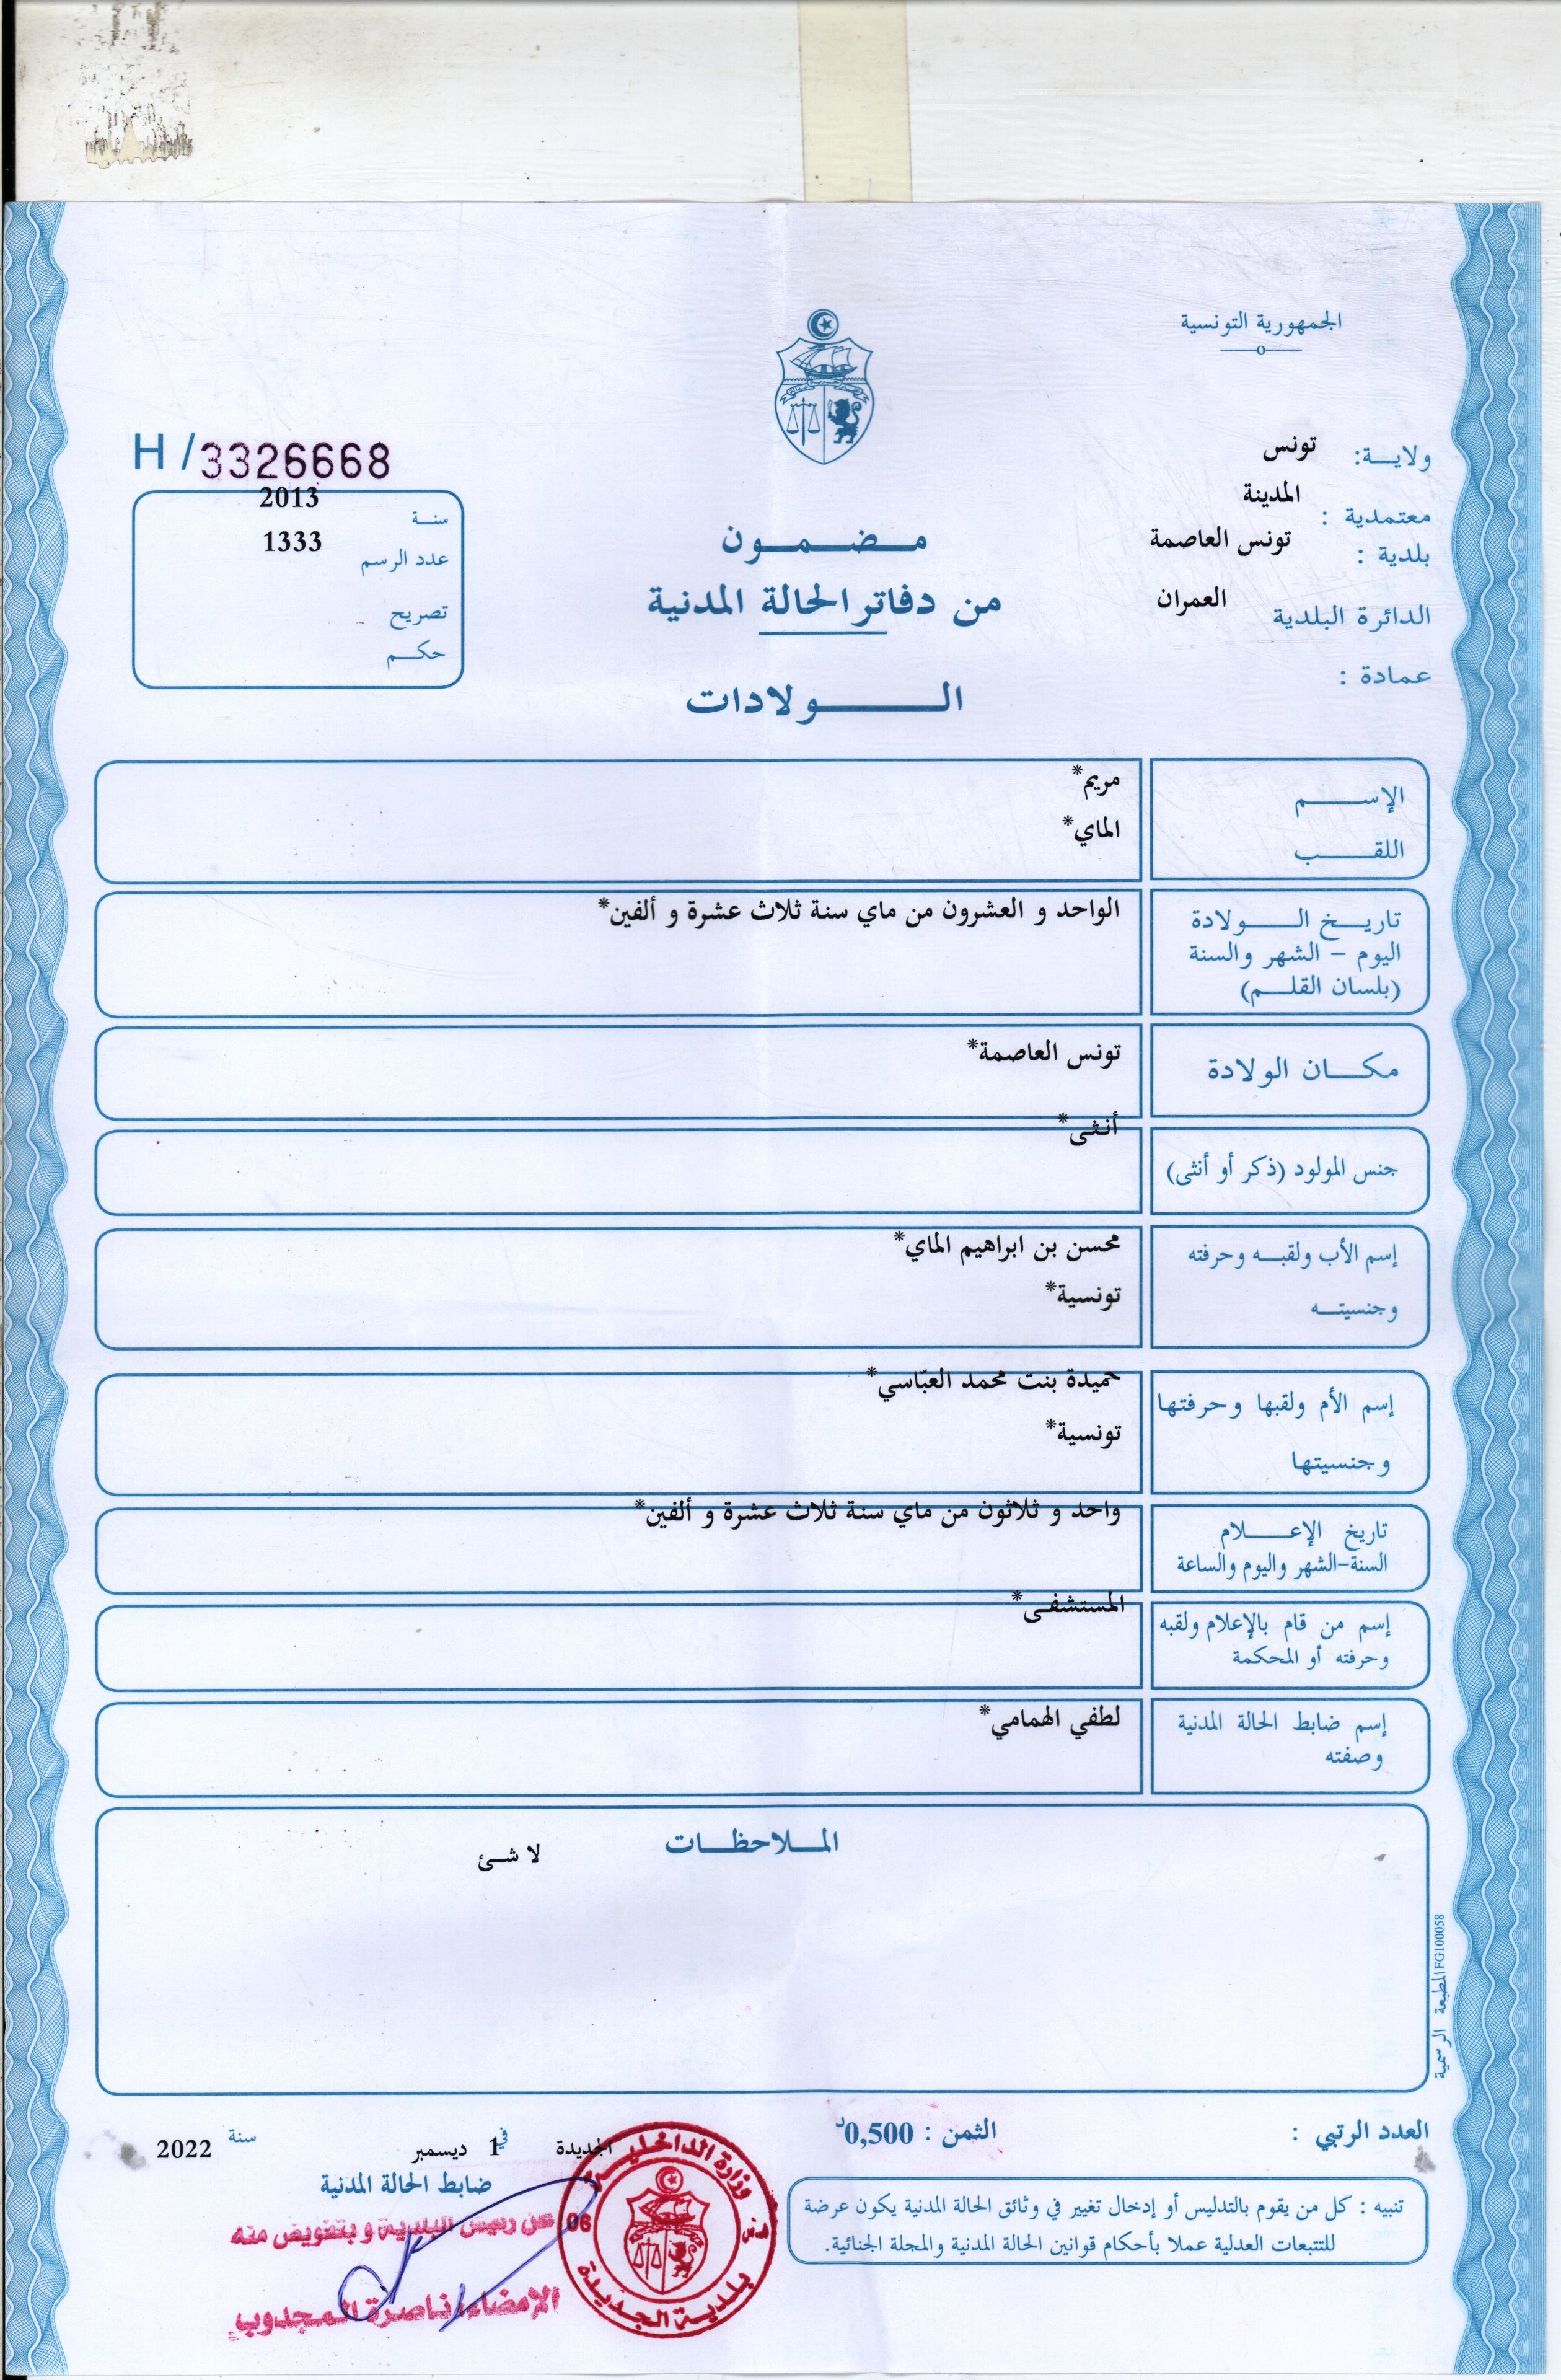 الجمهورية التونسية
ولايـــة: تونس
معتمدية : المدينة
بلدية : تونس العاصمة
الدائرة البلدية العمران
عمادة :
H/3326668
سنــة 2013
عدد الرسم 1333
تصريح
حكــم
مـــضـــمـــون
من دفاتر الحالة المدنية
الـــــولادات
الإســـــم مريم*
اللقـــــب الماي*
تاريـــخ الـــــولادة
اليوم – الشهر والسنة
(بلسان القلـــم)
الواحد و العشرون من ماي سنة ثلاث عشرة و ألفين*
مكـــان الولادة
تونس العاصمة*
جنس المولود (ذكر أو أنثى)
أنثى*
إسم الأب ولقبـــه وحرفته
وجنسيتـــه
محسن بن ابراهيم الماي*
تونسية*
إسم الأم ولقبها وحرفتها
وجنسيتها
حميدة بنت محمد العبّاسي*
تونسية*
تاريخ الإعـــــلام
السنة–الشهر واليوم والساعة
واحد و ثلاثون من ماي سنة ثلاث عشرة و ألفين*
إسم من قام بالإعلام ولقبه
وحرفته أو المحكمة
المستشفى*
إسم ضابط الحالة المدنية
وصفته
لطفي الهمامي*
المـــلاحظـــات
لا شئ
المطبعة الرسمية FG100058
العدد الرتبي :
الثمن : 0,500د
الجديدة في 1 ديسمبر سنة 2022
ضابط الحالة المدنية
عن رئيس البلدية و بتفويض منه
الإمضاء: ناصرة المجدوب
وزارة الداخلية
06
بلدية الجديدة
تنبيه : كل من يقوم بالتدليس أو إدخال تغيير في وثائق الحالة المدنية يكون عرضة
للتتبعات العدلية عملا بأحكام قوانين الحالة المدنية والمجلة الجنائية.